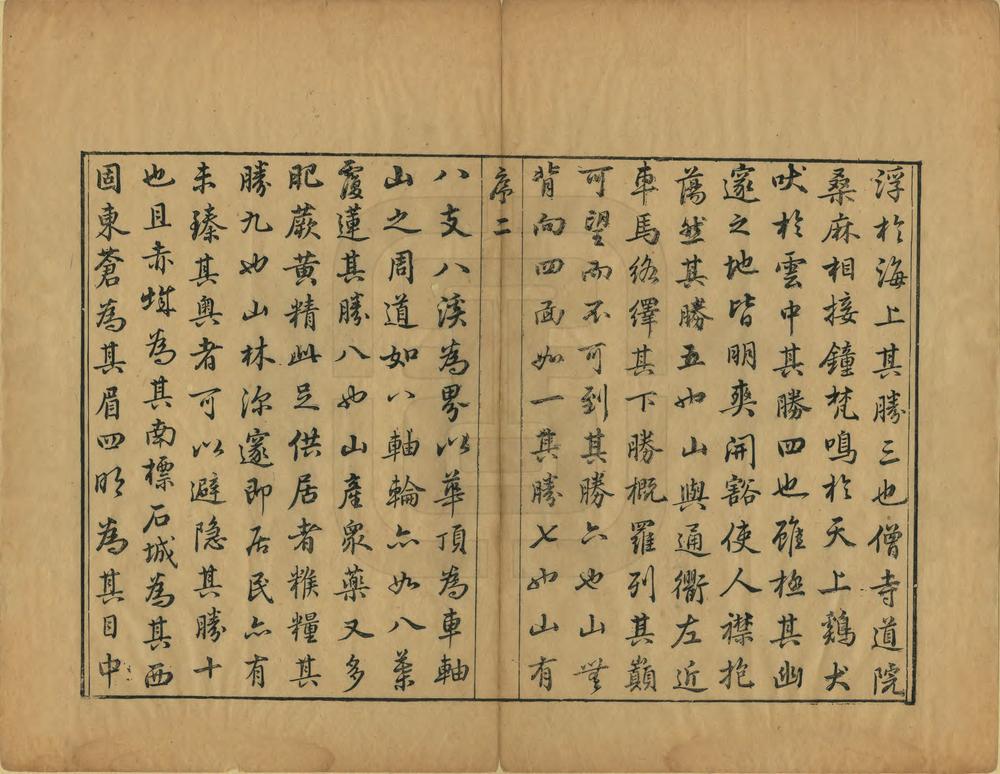 浮於海上其勝三也僧寺道院
桑麻相接鐘梵鳴於天上鷄犬
吠於雲中其勝四也雖極其幽
邃之地皆明爽開豁使人襟抱
蕩然其勝五也山與通衢左近
車馬絡繹其下勝概羅列其巔
可望而不可到其勝六也山無
背向四面如一其勝七也山有
序二
八支八溪為界以華頂為車軸
山之周道如八軸輪亦如八葉
覆蓮其勝八也山產眾藥又多
肥蕨黃精此足供居者糇糧其
勝九也山林深邃即居民亦有
未臻其奧者可以避隐其勝十
也且赤城為其南標石城為其西
固東蒼為其眉四明為其目中